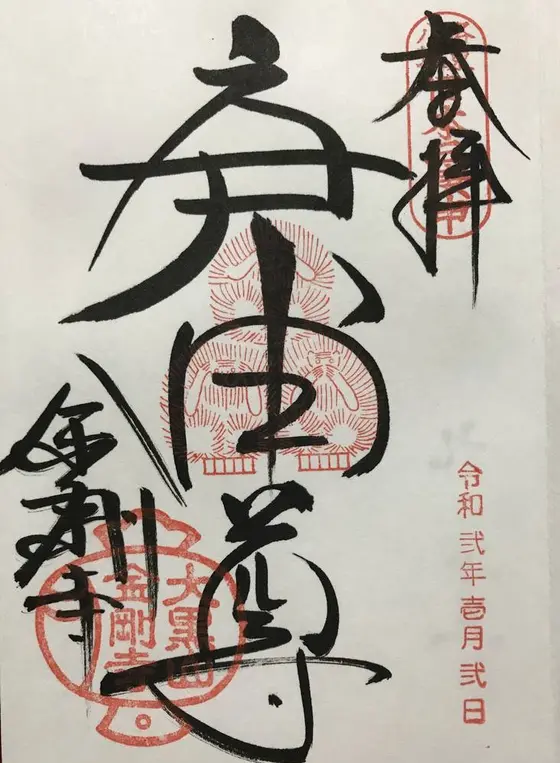 奉拝
令和弐年壱月弐日
庚申尊
金剛寺
大黒山
金剛寺